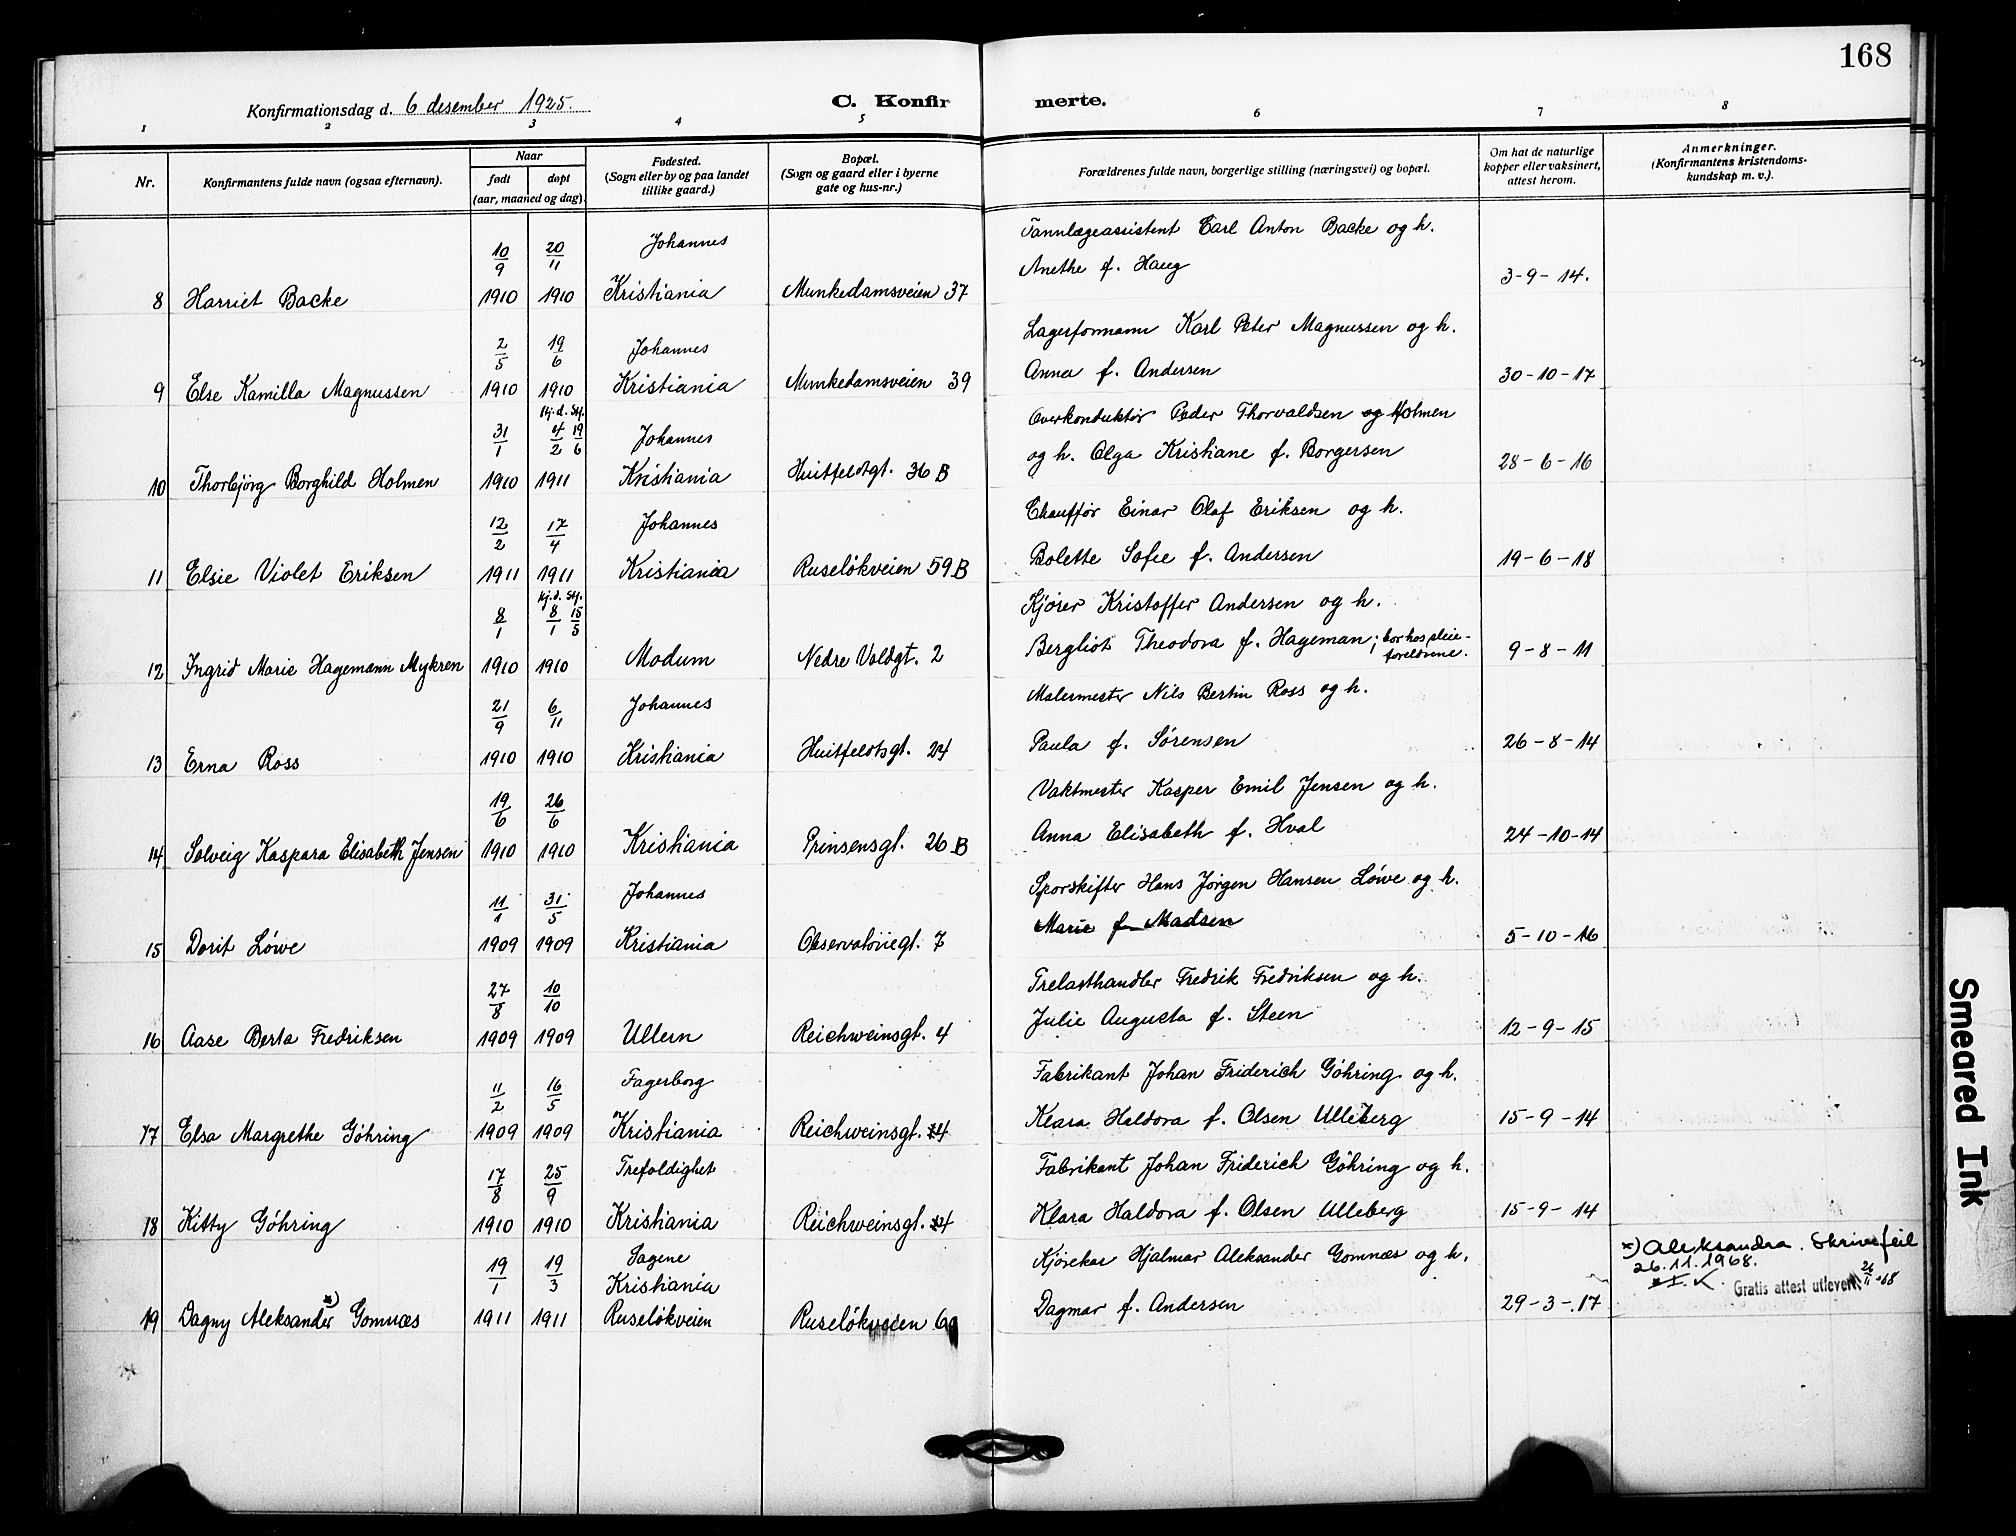 168
Konfirmationsdag d. 6 desember 1925.
C. Konfirmerte.
1 2 3 4 5 6 7 8
Nr.
Konfirmantens fulde navn (ogsaa efternavn).
Naar
født døpt
(aar, maaned og dag).
Fødested.
(Sogn eller by og paa landet
tillike gaard.)
Bopæl.
(Sogn og gaard eller i byerne
gate og hus-nr.)
Forældrenes fulde navn, borgerlige stilling (næringsvei) og bopæl.
Om hat de naturlige
kopper eller vaksinert,
attest herom.
Anmerkninger.
(Konfirmantens kristendoms-
kundskap m. v.).
10/9 20/11 Johannes Tannlægeassistent Carl Anton Backe og h.
Anethe f. Haug
8 Harriet Backe 1910 1910 Kristiania Munkedamsveien 37 3-9-14.
2/5 19/6 Johannes Lagerformann Karl Peter Magnussen og h.
9 Else Kamilla Magnussen 1910 1910 Kristiania Munkedamsveien 39 Anna f. Andersen 30-10-17
kj.d. Stf.
31/1 4/2 19/6 Johannes Overkonduktør Peder Thorvaldsen og Holmen
10 Thorbjørg Borghild Holmen 1910 1911 Kristiania Huitfeldtgt. 36 B og h. Olga Kristiane f. Borgersen 28-6-16
12/2 17/4 Johannes Chauffør Einar Olaf Eriksen og h.
11 Elsie Violet Eriksen 1911 1911 Kristiania Ruseløkveien 59 B Bolette Sofie f. Andersen 19-6-18
kj.d. Stf.
8/1 8/1 15/5 Kjører Kristoffer Andersen og h.
12 Ingrid Marie Hagemann Mykren 1910 1910 Modum Nedre Voldgt. 2 Bergliot Theodora f. Hageman; bor hos pleie-
foreldrene. 9-8-11
21/9 6/11 Johannes Malermester Nils Bertin Ross og h.
13 Erna Ross 1910 1910 Kristiania Huitfeldtsgt. 24 Paula f. Sørensen 26-8-14
19/6 26/6 Vaktmester Kasper Emil Jensen og h.
14 Solveig Kaspara Elisabeth Jensen 1910 1910 Kristiania Prinsensgt. 26 B Anna Elisabeth f. Hval 24-10-14
11/1 31/5 Johannes Sporskifter Hans Jørgen Hansen Løwe og h.
15 Dorit Løwe 1909 1909 Kristiania Observatoriegt. 7 Marie f. Madsen 5-10-16
27/8 10/10 Trelasthandler Fredrik Fredriksen og h.
16 Aase Berta Fredriksen 1909 1909 Ullern Reichweinsgt. 4 Julie Augusta f. Steen 12-9-15
11/2 16/5 Fagerborg Fabrikant Johan Friderich Göhring og h.
17 Elsa Margrethe Göhring 1909 1909 Kristiania Reichweinsgt. 4 Klara Haldora f. Olsen Ulleberg 15-9-14
17/8 25/9 Trefoldighet Fabrikant Johan Friderich Göhring og h.
18 Kitty Göhring 1910 1910 Kristiania Reichweinsgt. 4 Klara Haldora f. Olsen Ulleberg 15-9-14
19/1 19/3 Sagene Kjørekar Hjalmar Aleksander Gomnæs og h.
Kristiania
19 Dagny Aleksander x) Gomnæs 1911 1911 Ruseløkveien Ruseløkveien Dagmar f. Andersen 29-3-17
x) Aleksandra. Skrivefeil
26.11.1968.
Gratis attest utlevert 26/11-68
Smeared Ink